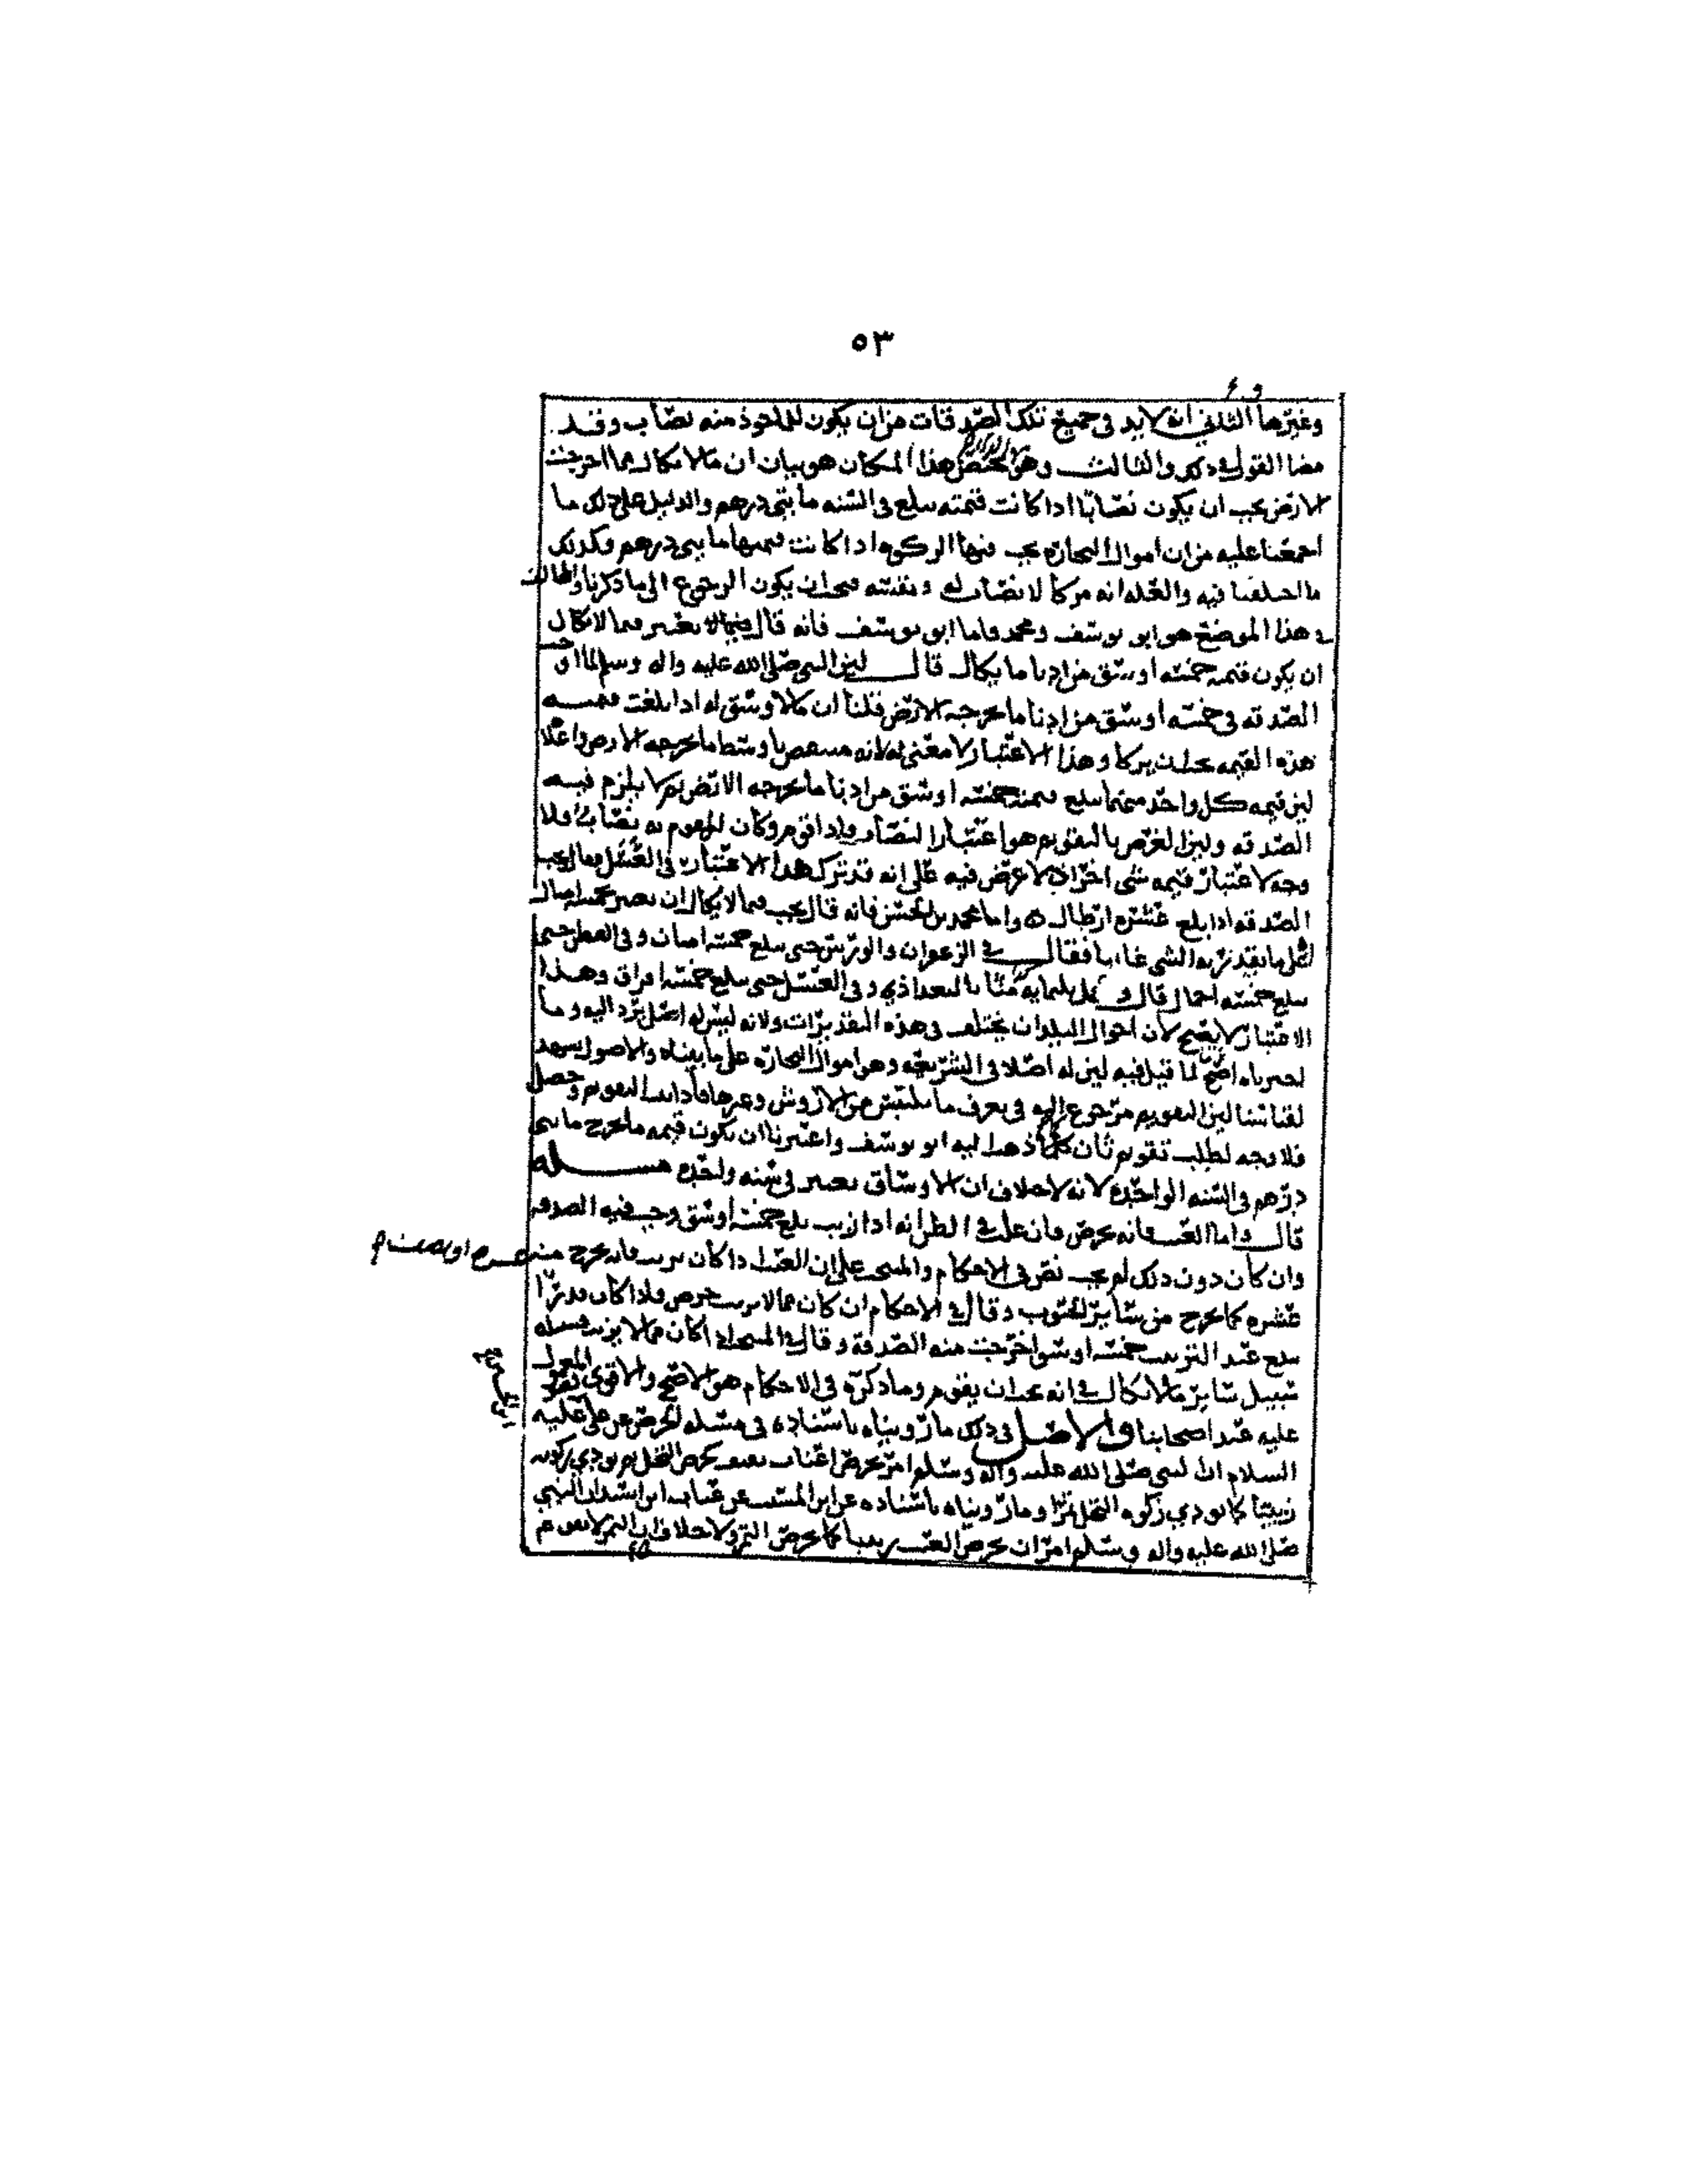 ٥٣
وغيرها الثاني انه لابد في جميع تلك الصدقات من ان يكون للماخوذ منه نصاب وقد
مضا القول في ذلك والثالث وهو يختص هذا المكان هو بيان ان مالا يكال مما اخرجت
الارض يجب ان يكون نصابا اذا كانت قيمته تبلغ في السنه مأيتي درهم والدليل على ذلك ما
اجمعنا عليه من ان اموال التجاره يجب فيها الزكوه اذا كانت قيمتها مايتي درهم وكذلك
ما اختلفنا فيه والعله انه مزكا لا نصاب له في نفسه فيجب ان يكون الرجوع الى ما ذكرنا والمخالف
في هذا الموضع هو ابو يوسف ومحمد واما ابو يوسف فانه قال يعتبر فيما لا يكال
ان يكون قيمته خمسه اوسق من ادنا ما يكال قال لان النبي صلى الله عليه واله وسلم لما اوجب
الصدقه في خمسه اوسق من ادنا ما تخرجه الارض قلنا ان مالا وسق له اذا بلغت قيمته
هذه القيمه يجب ان يزكا وهذا الاعتبار لا معنى له لانه منتقض باوسط ما تخرجه الارض واعلا
لان قيمه كل واحد منهما تبلغ قيمه خمسه اوسق من ادنا ما تخرجه الارض ثم لا يلزم فيه
الصدقه ولان الغرض بالتقويم هو اعتبار النصاب واذا قوم وكان للمقوم به نصاب فلا
وجه لاعتبار قيمه شي اخر لا غرض فيه على انه قد ترك هذا الاعتبار في العسل فقال يجب
الصدقه اذا بلغ عشره ارطال واما محمد بن الحسن فانه قال يجب فيما لا يكال ان يعتبر خمسه امثال
اعلى ما يقدر به الشي غالبا فقال في الزعفران والورس حتى يبلغ خمسه امنان وفي القطن حتى
يبلغ خمسه احمال قال وكل ثلثمايه منًا بالبغداذي وفي العسل حتى يبلغ خمسه افراق وهذا
الاعتبار لا يصح لان احوال البلدان يختلف في هذه التقديرات ولانه ليس له اصل يرد اليه وما
اخترناه اصح لما قيل فيه لان له اصلا في الشريعه وهو اموال التجاره على ما بيناه والاصول يشهد
لقياسنا لان التقويم مرجوع اليه في تعرف ما يلتبس من الاروش وغيرها فاذا التقويم وحصل
فلا وجه لطلب تقويم ثان كما ذهب اليه ابو يوسف واعتبرنا ان يكون قيمه ما يخرج مايتي
درهم في السنه الواحده لانه لا خلاف ان الاوساق يعتبر في سنه واحده مسله
قال واما العنب فانه يخرص فان غلب في الظن انه اذا زبب بلغ خمسه اوسق وجب فيه الصدقه
وان كان دون ذلك لم يجب نص في الاحكام والمنتخب على ان العنب اذا كان يزبب فانه يخرج منه
عشره او نصف
عشره كما يخرج من سائر الحبوب وقال في الاحكام ان كان مما لا يزبب خرص فاذا كان قدرًا
يبلغ عند التزبيب خمسه اوسق اخرجت منه الصدقة وقال في المنتخب اذا كان مما لا يزبب فسبيله
سبيل سائر مالا يكال في انه يجب ان يقوم وما ذكره في الاحكام هو الاصح والاقوى المعول
عليه عند اصحابنا والاصل في ذلك ما رويناه باسناده في مسله الخرص عن علي عليه
السلام ان النبي صلى الله عليه واله وسلم امر بخرص اعناب ثقيف كخرص النخل ثم يودي زكوته
زبيبًا كما يودي زكوه النخل تمرًا وما رويناه باسناده عن ابن المسيب عن عتاب بن اسيد ان النبي
صلى الله عليه واله وسلم امر ان يخرص العنب زبيبا كما يخرص التمر ولا خلاف ان التمر